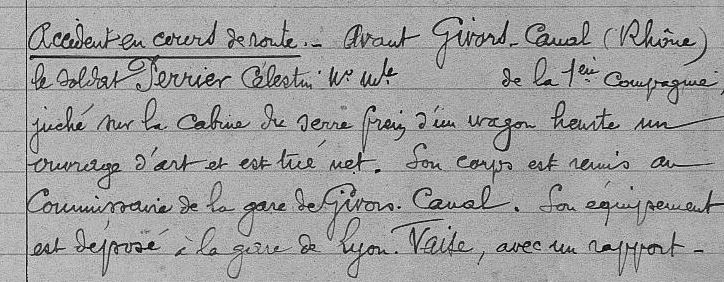 Accident en cours de route. - Avant Givors-Canal (Rhône)
le soldat Perrier Célestin N° Mle de la 1ère Compagnie,
juché sur la cabine du serre frein d'un wagon heurte un
ouvrage d'art et est tué net. Son corps est remis au
Commissaire de la gare de Givors-Canal. Son équipement
est déposé à la gare de Lyon-Vaise, avec un rapport -